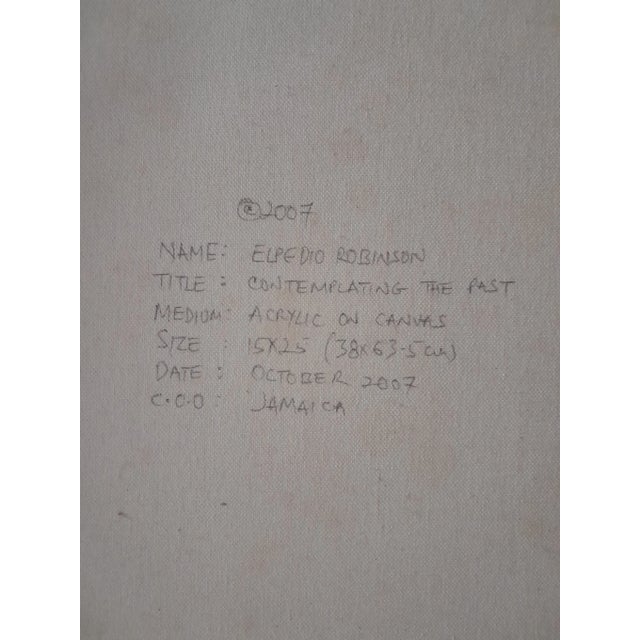 ©2007
NAME: ELPEDIO ROBINSON
TITLE: CONTEMPLATING THE PAST
MEDIUM: ACRYLIC ON CANVAS
SIZE: 15X25 (38X63.5cm)
DATE: OCTOBER 2007
C.O.O: JAMAICA